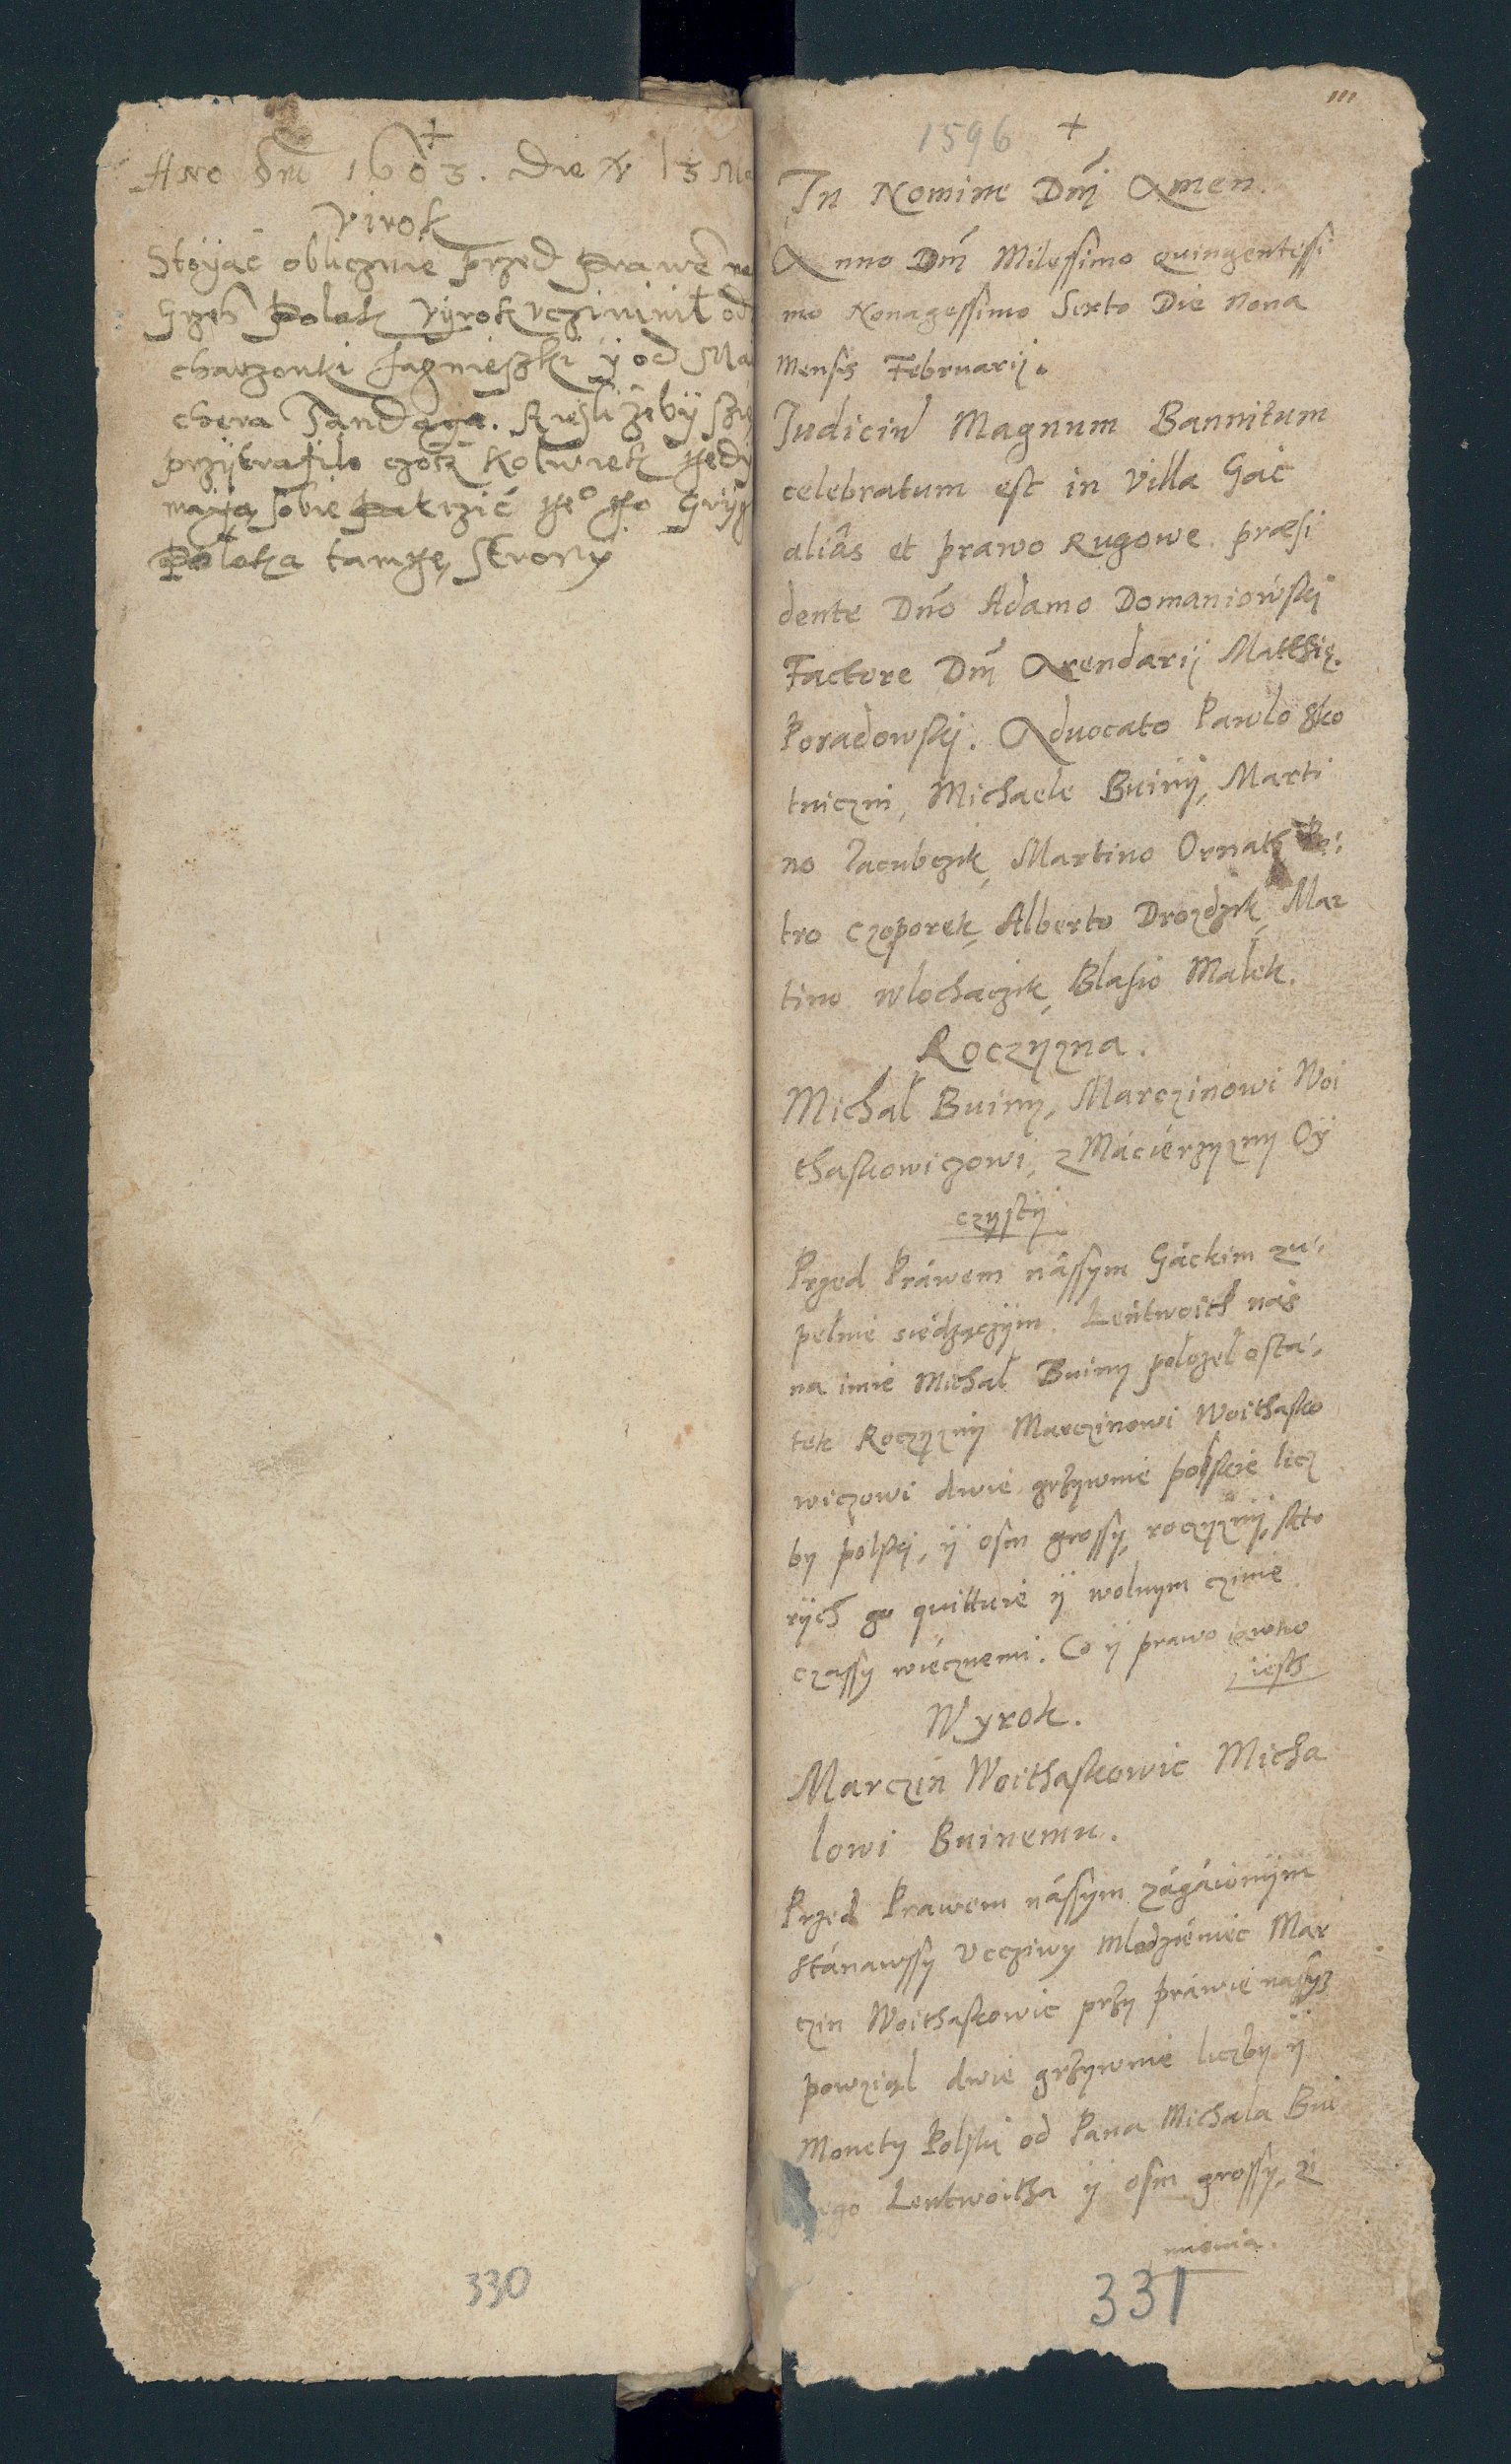 +
Ano Dni 1603. Die 13 Ma
virok
Stoyac oblicznie przed Prawe na
Grzeh Polak vyrok vcziinił od
charzonki Jagnieszki ÿ od Ma
chera Tandaga. Kiesli żebÿ szię
przÿtrafilo czosz kolwiek
maja sobie
Poloka tamże, strony
330
111
1596 +
In Nomine Dnj Amen.
Anno Dnj Milessimo quingentissi
mo Nonagessimo Sexto Die Nona
Mensis Februarij.
Judiciu Magnum Bannitum
celebratum est in villa Gać
aliâs et prawo Rugowe. præsi
dente Dno Adamo Domaniowskj
Factore Dnj Arendarij Matthię
Poradowskj. Aduocato Pawlo zko
tniczni, Michaele Buiny, Marti
no Jacubczik, Martino Ornat, Pe:
tro Czoporek, Alberto Drozdzik, Mar
tino wlochaczik, Blasio Malek.
Roczÿzna.
Michał Buiny, Marczinowi Woi
thaskowiczowi, z Macierzyzny Oÿ
czystÿ
Przed Prawem nássym Gáckim zu:
pełnie siedzączÿm. Lentwoith nas
na imie Michał Buiny położeł osta:
tek Roczÿznÿ Marczinowi Woithasko
wiczowi dwie grzywnie polskie licz
by polskj, ÿ osm grossy, roczÿznÿ, kto
rÿch go quittuie ÿ wolnym czinie
czassy wiécznemi. Co ÿ prawo iawno
iest
Wyrok.
Marczin Woithaskowic Micha
lowi Buinemu.
Przed Prawem nássym zágáionÿm
stánawssy Vccziwy młodzieniec Mar
czin Woithaskowic przy práwie nasym
powziął dwie grzywnie liczby ÿ
Monety Polski od Pana Michala Bui
nego Lentwoitha ÿ osm grossy, zi
mienia.
331